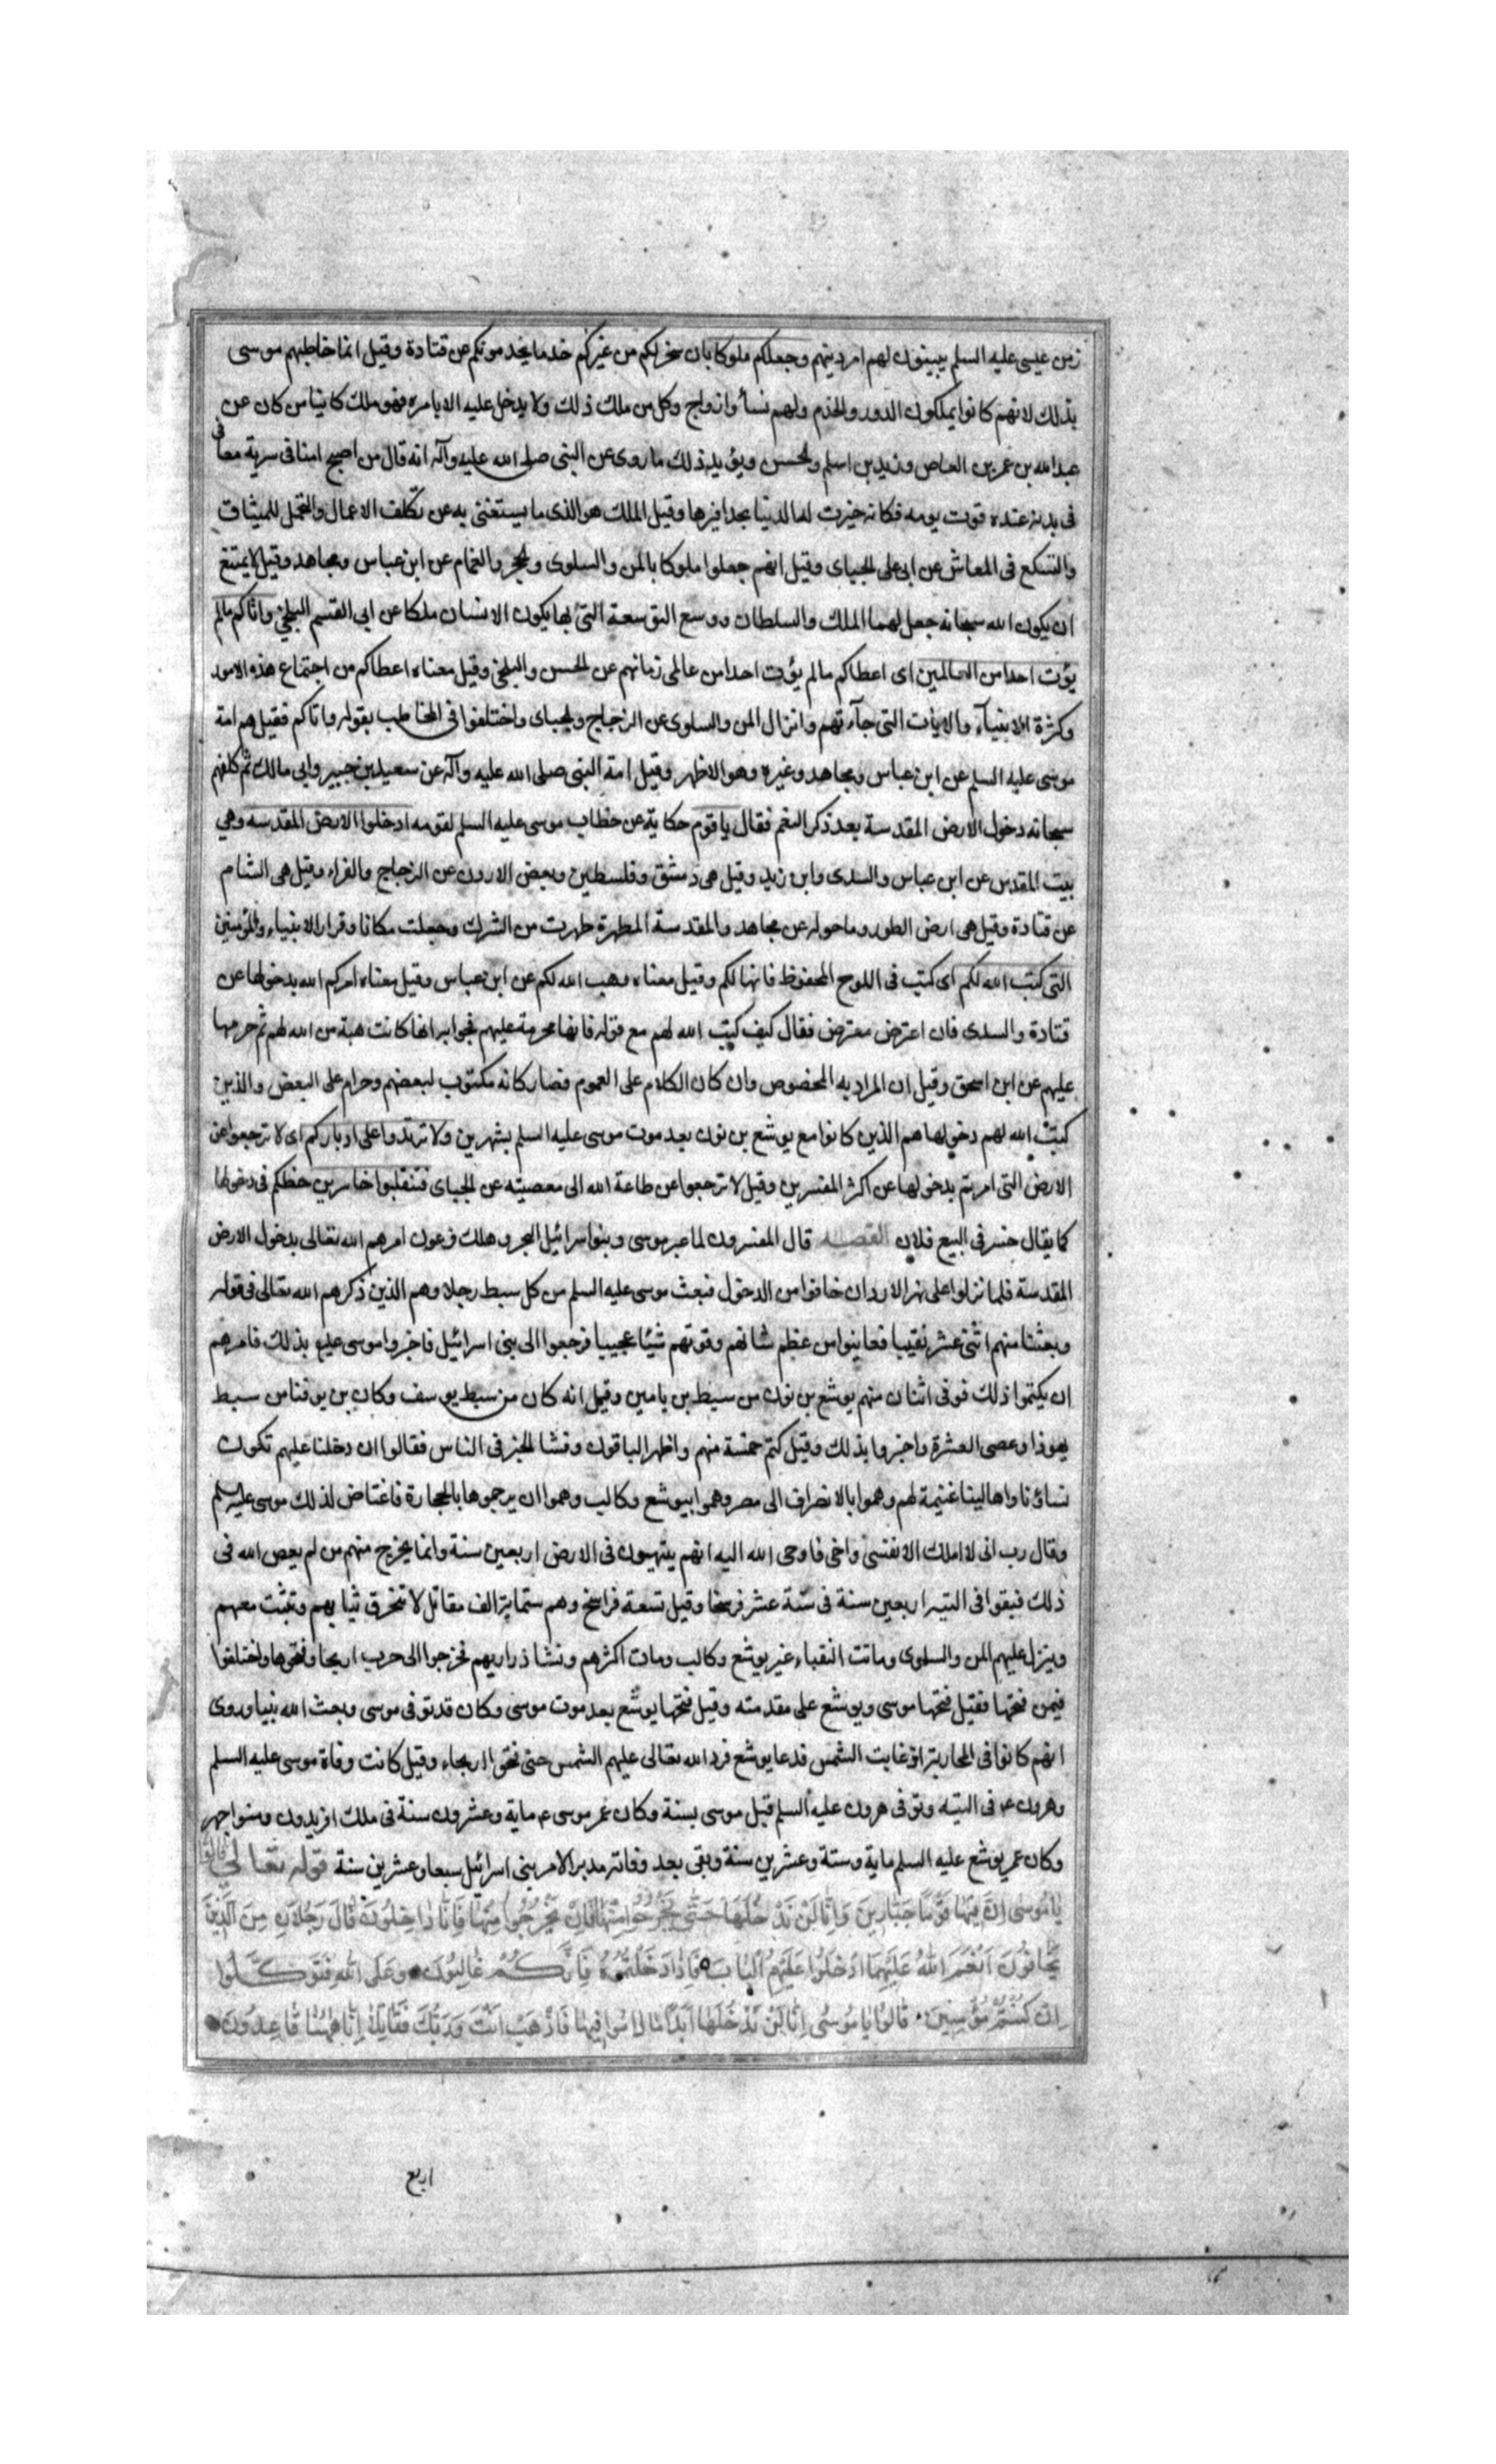 زمن عيسى عليه السلم يبينون لهم امر دينهم وجعلكم ملوكا بان سخر لكم من غيركم خدما يخدمونكم عن قتادة وقيل انما خاطبهم موسى
بذلك لانهم كانوا يملكون الدور والخدم ولهم نسأ وازواج وكل من ملك ذلك ولا يدخل عليه الا بامره فهو ملك كائنا من كان عن
عبد الله بن عمر بن العاص وزيد بن اسلم والحسن ويؤيد ذلك ما روى عن النبى صلى الله عليه وآله انه قال من اصبح امنا فى سربه معافى
فى بدنه عنده قوت يومه فكانه خيرت له الدنيا بحدافيرها وقيل الملك هو الذى ما يستغنى به عن تكلف الاعمال والتحمل للميثاق
والتسكع فى المعاش عن ابى على الجبياى وقيل انهم جعلوا ملوكا بالمن والسلوى والحجر والغمام عن ابن عباس ومجاهد وقيل لا يمتنع
ان يكون الله سبحانه جعل لهما الملك والسلطان ووسع التوسعة التى بها يكون الانسان ملكا عن ابى القسم البلخى واتاكم مالم
يؤت احدا من العالمين اى اعطاكم مالم يؤت احدا من عالمى زمانهم عن الحسن والبلخى وقيل معناه اعطاكم من اجتماع هذه الامور
وكثرة الانبيآء والايات التى جآءتهم وانزال المن والسلوى عن الزجاج والجبياى واختلفوا فى المخاطب بقوله واتاكم فقيل هم امة
موسى عليه السلم عن ابن عباس ومجاهد وغيره وهو الاظهر وقيل امة النبى صلى الله عليه وآله عن سعيد بن جبير وابى مالك ثم كلفهم
سبحانه دخول الارض المقدسة بعد ذكر النعم فقال يا قوم حكاية عن خطاب موسى عليه السلم لقومه ادخلوا الارض المقدسه وهى
بيت المقدس عن ابن عباس والسدى وابن زيد وقيل هى دمشق وفلسطين وبعض الاردن عن الزجاج والفراء وقيل هى الشام
عن قتادة وقيل هى ارض الطور وما حوله عن مجاهد والمقدسة المطهرة طهرت من الشرك وجعلت مكانا وقرارا للانبياء والمؤمنين
التى كتب الله لكم اى كتب فى اللوح المحفوظ فانها لكم وقيل معناه وهب الله لكم عن ابن عباس وقيل معناه امركم الله بدخولها عن
قتادة والسدى فان اعترض معترض فقال كيف كتب الله لهم مع قوله فانها محرمة عليهم فجوابه انها كانت هبة من الله لهم ثم حرمها
عليهم عن ابن اسحق وقيل ان المراد به المخصوص وان كان الكلام على العموم فصار كانه مكتوب لبعضهم وحرام على البعض والذين
كتب الله لهم دخولها هم الذين كانوا مع يوشع بن نون بعد موت موسى عليه السلم بشهرين ولا ترتدوا على ادباركم اى لا ترجعوا عن
الارض التى امرتم بدخولها عن اكثر المفسرين وقيل لا ترجعوا عن طاعة الله الى معصيته عن الجبياى فتنقلبوا خاسرين حظكم فى دخولها
كما يقال خسر فى البيع فلان القصه قال المفسرون لما عبر موسى وبنو اسرائيل البحر وهلك فرعون امرهم الله تعالى بدخول الارض
المقدسة فلما نزلوا على نهر الاردان خافوا من الدخول فبعث موسى عليه السلم من كل سبط رجلا وهم الذين ذكرهم الله تعالى فى قوله
وبعثنا منهم اثنى عشر نقيبا فعاينوا من عظم شانهم وقوتهم شيئا عجيبا فرجعوا الى بنى اسرائيل فاخبروا موسى عليه بذلك فامرهم
ان يكتموا ذلك فوفى اثنان منهم يوشع بن نون من سبط بن يامين وقيل انه كان من سبط يوسف وكان بن يوفنا من سبط
يهوذا وعصى العشرة واخبروا بذلك وقيل كتم خمسة منهم واظهر الباقون وفشا الخبر فى الناس فقالوا ان دخلنا عليهم تكون
نساؤنا واهالينا غنيمة لهم وهموا بالانصراف الى مصر وهموا بيوشع وكالب وهموا ان يرجموها بالحجارة فاغتاض لذلك موسى عليه السلم
وقال رب انى لا املك الا نفسى واخى فاوحى الله اليه انهم يتيهون فى الارض اربعين سنة وانما يخرج منهم من لم يعص الله فى
ذلك فبقوا فى التيه اربعين سنة فى ستة عشر فرسخا وقيل تسعة فراسخ وهم ستماية الف مقاتل لا تتخرق ثيابهم وتثبت معهم
وينزل عليهم المن والسلوى وماتت النقباء غير يوشع وكالب ومات اكثرهم ونشا ذراريهم فخرجوا الى حرب اريحا وفتحوها واختلفوا
فيمن فتحها فقيل فتحها موسى ويوشع على مقدمته وقيل فتحها يوشع بعد موت موسى وكان قد توفى موسى وبعث الله نبيا وروى
انهم كانوا فى المحاربة اذ غابت الشمس فدعا يوشع فرد الله تعالى عليهم الشمس حتى فتحوا اريحاء وقيل كانت وفاة موسى عليه السلم
وهرون ع فى التيه وتوفى هرون عليه السلم قبل موسى بسنة وكان عمر موسى ع ماية وعشرون سنة فى ملك افريدون ومنوا جهر
وكان عمر يوشع عليه السلم ماية وستة وعشرين سنة وبقى بعد وفاته مدبرا لامر بنى اسرائيل سبعا وعشرين سنة قوله تعالى قالوا
يَا مُوسَى اِنَّ فِيهَا قَوْمًا جَبَّارِينَ وَاِنَّا لَنْ نَدْخُلَهَا حَتَّى يَخْرُجُوا مِنْهَا فَاِنْ يَخْرُجُوا مِنْهَا فَاِنَّا دَاخِلُونَ قَالَ رَجُلَانِ مِنَ الَّذِينَ
يَخَافُونَ اَنْعَمَ اللّٰهُ عَلَيْهِمَا ادْخُلُوا عَلَيْهِمُ الْبَابَ فَاِذَا دَخَلْتُمُوهُ فَاِنَّكُمْ غَالِبُونَ وَعَلَى اللّٰهِ فَتَوَكَّلُوا
اِنْ كُنْتُمْ مُؤْمِنِينَ قَالُوا يَا مُوسَى اِنَّا لَنْ نَدْخُلَهَا اَبَدًا مَا دَامُوا فِيهَا فَاذْهَبْ اَنْتَ وَرَبُّكَ فَقَاتِلَا اِنَّا هٰهُنَا قَاعِدُونَ
اربع